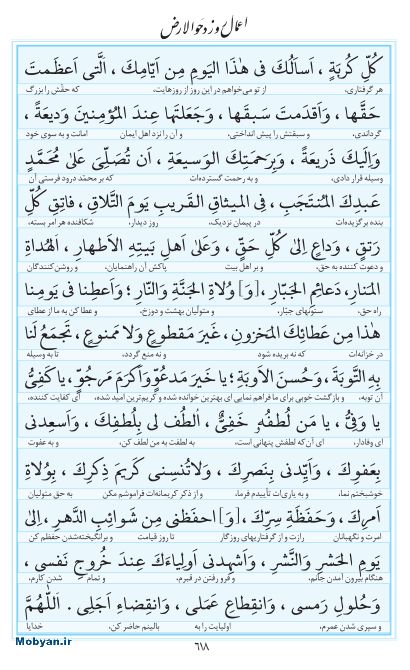 اعمال روز دحوالارض
كُلِّ كُرْبَةٍ ، اَسْاَلُكَ فى هٰذَا الْيَوْمِ مِنْ اَيّامِكَ ، اَلَّتى اَعْظَمْتَ
هر گرفتاری، از تو می‌خواهم در این روز از روزهایت، که حقّش را بزرگ
حَقَّها ، وَاَقْدَمْتَ سَبْقَها ، وَجَعَلْتَها عِنْدَ الْمُؤْمِنينَ وَديعَةً ،
گرداندی، و سبقتش را پیش انداختی، و آن را نزد اهل ایمان امانت و به سوی خود
وَاِلَيْكَ ذَريعَةً ، وَبِرَحْمَتِكَ الْوَسيعَةِ ، اَنْ تُصَلِّىَ عَلىٰ مُحَمَّدٍ
وسیله قرار دادی، و به رحمت گسترده‌ات که بر محمّد درود فرستی آن
عَبْدِكَ الْمُنْتَجَبِ ، فِى الْميثاقِ الْقَريبِ يَوْمَ التَّلاقِ ، فاتِقِ كُلِّ
بنده برگزیده‌ات در پیمان نزدیک، روز دیدار، شکافنده هر امر بسته،
رَتْقٍ ، وَداعٍ اِلىٰ كُلِّ حَقٍّ ، وَعَلىٰ اَهْلِ بَيْتِهِ الْاَطْهارِ ، الْهُداةِ
و دعوت کننده به حق، و بر اهل بیت پاکش آن راهنمایان، و روشن‌کنندگان
الْمَنارِ، دَعائِمِ الْجَبّارِ ، [وَ] وُلاةِ الْجَنَّةِ وَالنّارِ ؛ وَاَعْطِنا فى يَوْمِنا
راه حق، ستونهای جبّار، و متولّیان بهشت و دوزخ، و عطا کن به ما از عطای
هٰذا مِنْ عَطائِكَ الْمَخْزونِ، غَيْرَ مَقْطوعٍ وَلا مَمْنوعٍ ، تَجْمَعُ لَنا
در خزانه‌ات که نه بریده شود و نه منع گردد، تا به وسیله
بِهِ التَّوْبَةَ ، وَحُسْنَ الْاَوْبَةِ ؛ يا خَيْرَ مَدْعُوٍّ وَاَكْرَمَ مَرْجُوٍّ ، يا كَفِىُّ
آن توبه، و بازگشت خوبی برای ما فراهم نمایی ای بهترین خوانده شده و کریم‌ترین امید شده، ای کفایت کننده،
يا وَفِىُّ ، يا مَنْ لُطْفُهُ خَفِىٌّ ، اُلْطُفْ لى بِلُطْفِكَ ، وَاَسْعِدْنى
ای وفادار، ای آن‌که لطفش پنهانی است، به لطفت به من لطف کن، و به عفوت
بِعَفْوِكَ ، وَاَيِّدْنى بِنَصْرِكَ ، وَلا تُنْسِنى كَريمَ ذِكْرِكَ ، بِوُلاةِ
خوشبختم نما، و به یاری‌ات تأییدم فرما، و از ذکر کریمانه‌ات فراموشم مکن به حق متولیان
اَمْرِكَ ، وَحَفَظَةِ سِرِّكَ ، [وَ] احْفَظْنى مِنْ شَوائِبِ الدَّهْرِ ، اِلىٰ
امرت و نگهبانان رازت و از گرفتاریهای روزگار تا روز قیامت و برانگیخته‌شدن حفظم کن
يَوْمِ الْحَشْرِ وَالنَّشْرِ ، وَاَشْهِدْنى اَوْلِياءَكَ عِنْدَ خُروجِ نَفْسى ،
هنگام بیرون آمدن جانم، و فرو رفتن در قبرم، و تمام شدن کارم،
وَحُلولِ رَمْسى ، وَانْقِطاعِ عَمَلى ، وَانْقِضاءِ اَجَلى . اَللّٰهُمَّ
و سپری شدن عمرم، اولیایت را به بالینم حاضر کن. خدایا
۶۱۸
Mobyan.ir